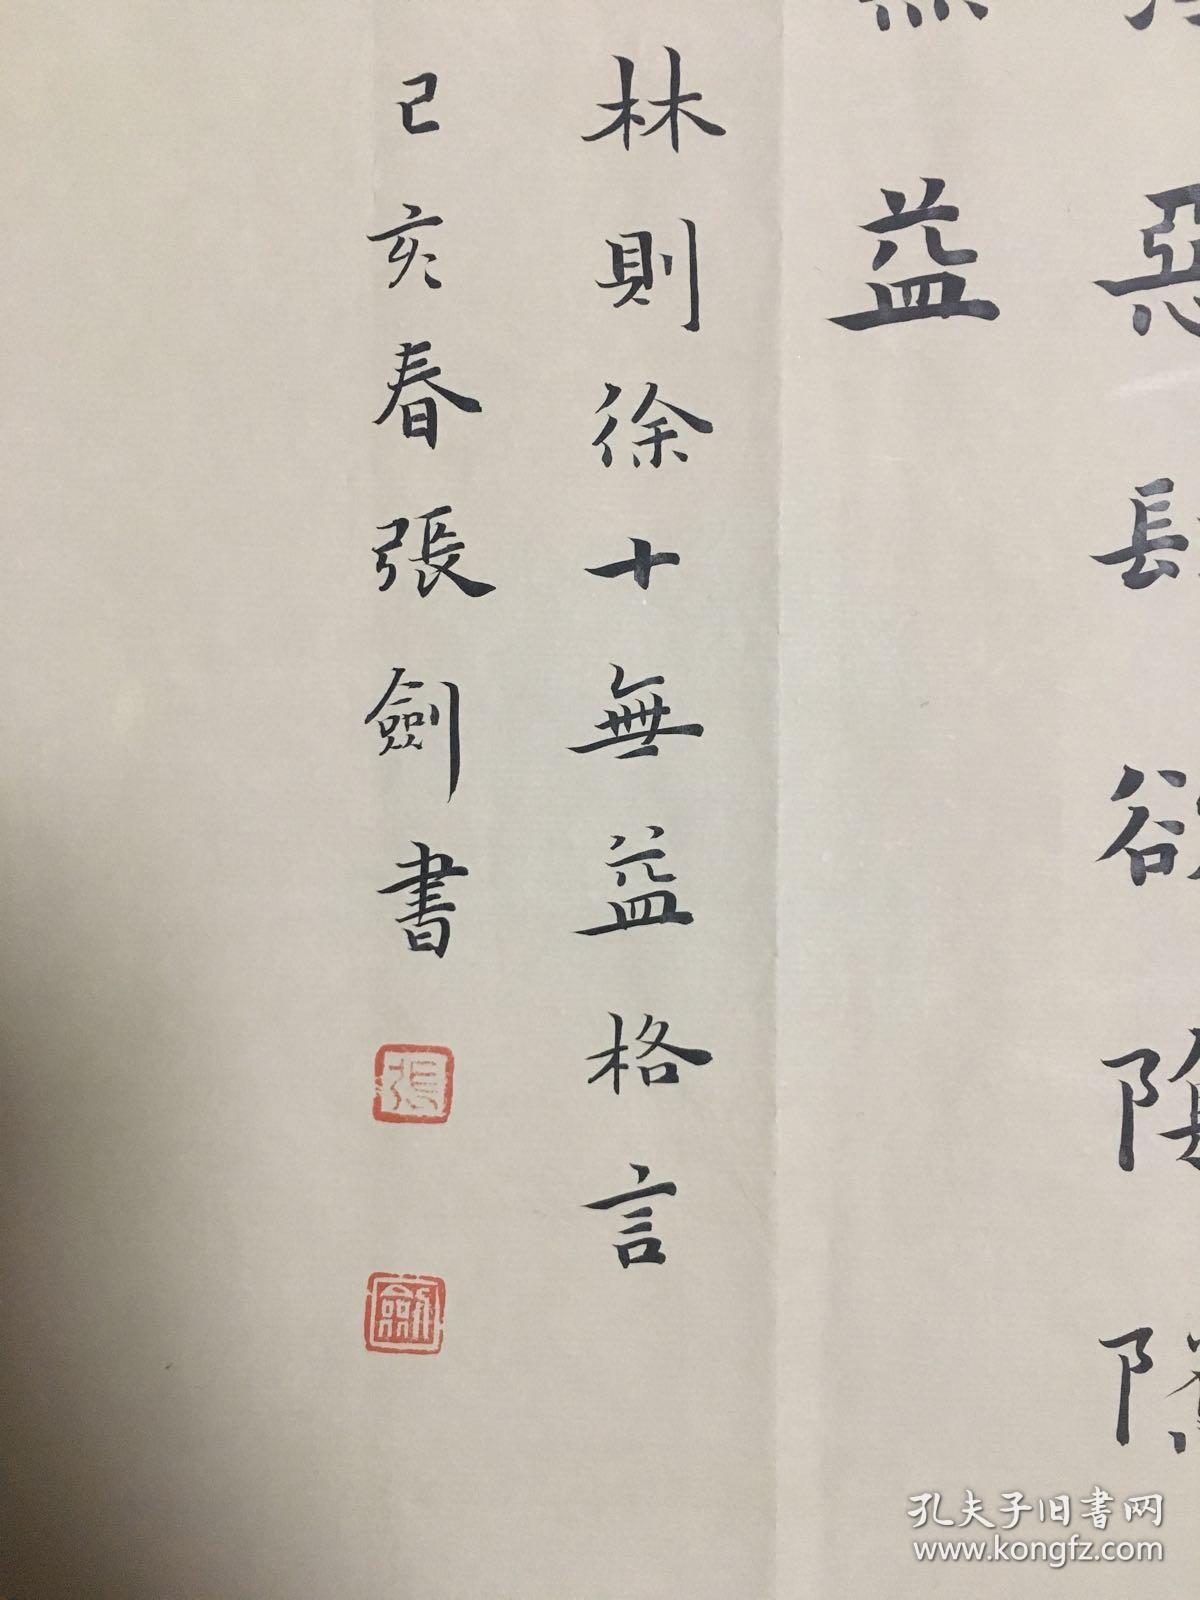 惡
益
林則徐十無益格言
己亥春張劍書
張
劍
孔夫子旧書网
www.kongfz.com